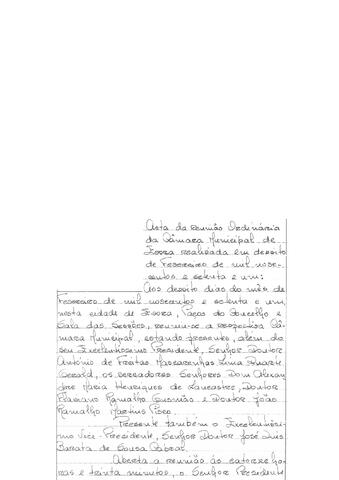 Acta da reunião Ordinária
da Câmara Municipal de
Évora realizada em dezoito
de Fevereiro de mil nove-
centos e setenta e um:
Aos dezoito dias do mês de
Fevereiro de mil novecentos e setenta e um,
nesta cidade de Évora, Paços do Concelho e
Sala das Sessões, reuniu-se a respectiva Câ-
mara Municipal, estando presentes, além do
seu Excelentíssimo Presidente, Senhor Doutor
António de Freitas Mascarenhas Lima
os vereadores Senhores Dom
José Maria Henriques de Lancastre, Doutor
Ramalho e Doutor João
Ramalho Martins Pisco.
Presente também o Excelentíssi-
mo Vice-Presidente, Senhor Doutor José Luis
Barata de Sousa Cabral.
Aberta a reunião às catorze ho-
ras e trinta minutos, o Senhor Presidente